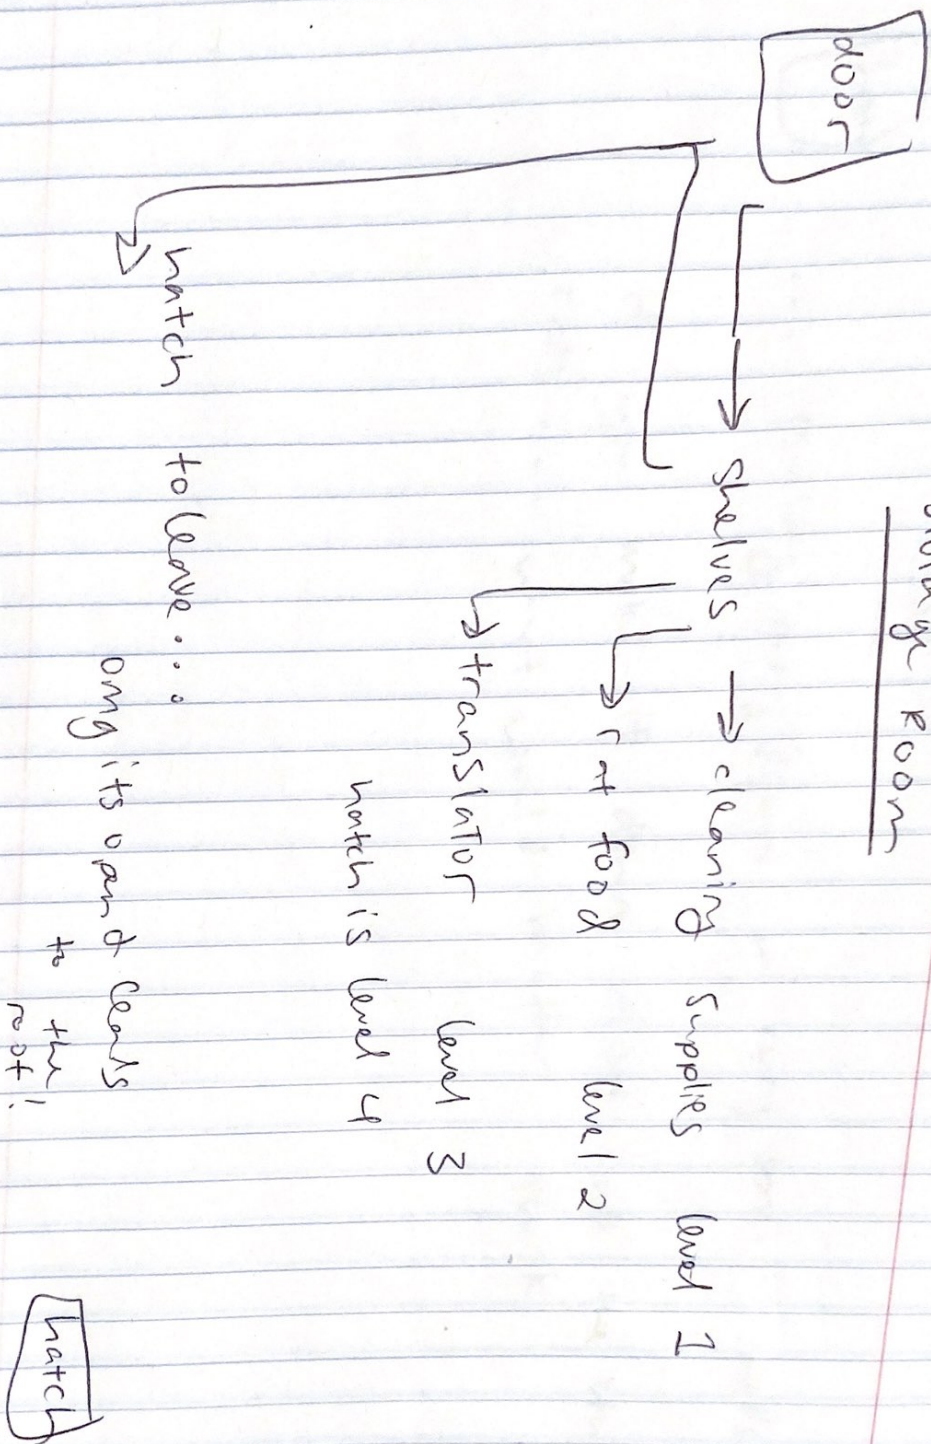 Storage Room
door
shelves → cleaning supplies level 1
rat food level 2
translator level 3
hatch is level 4
hatch to leave...
omg its open & leads
to the
roof!
hatch